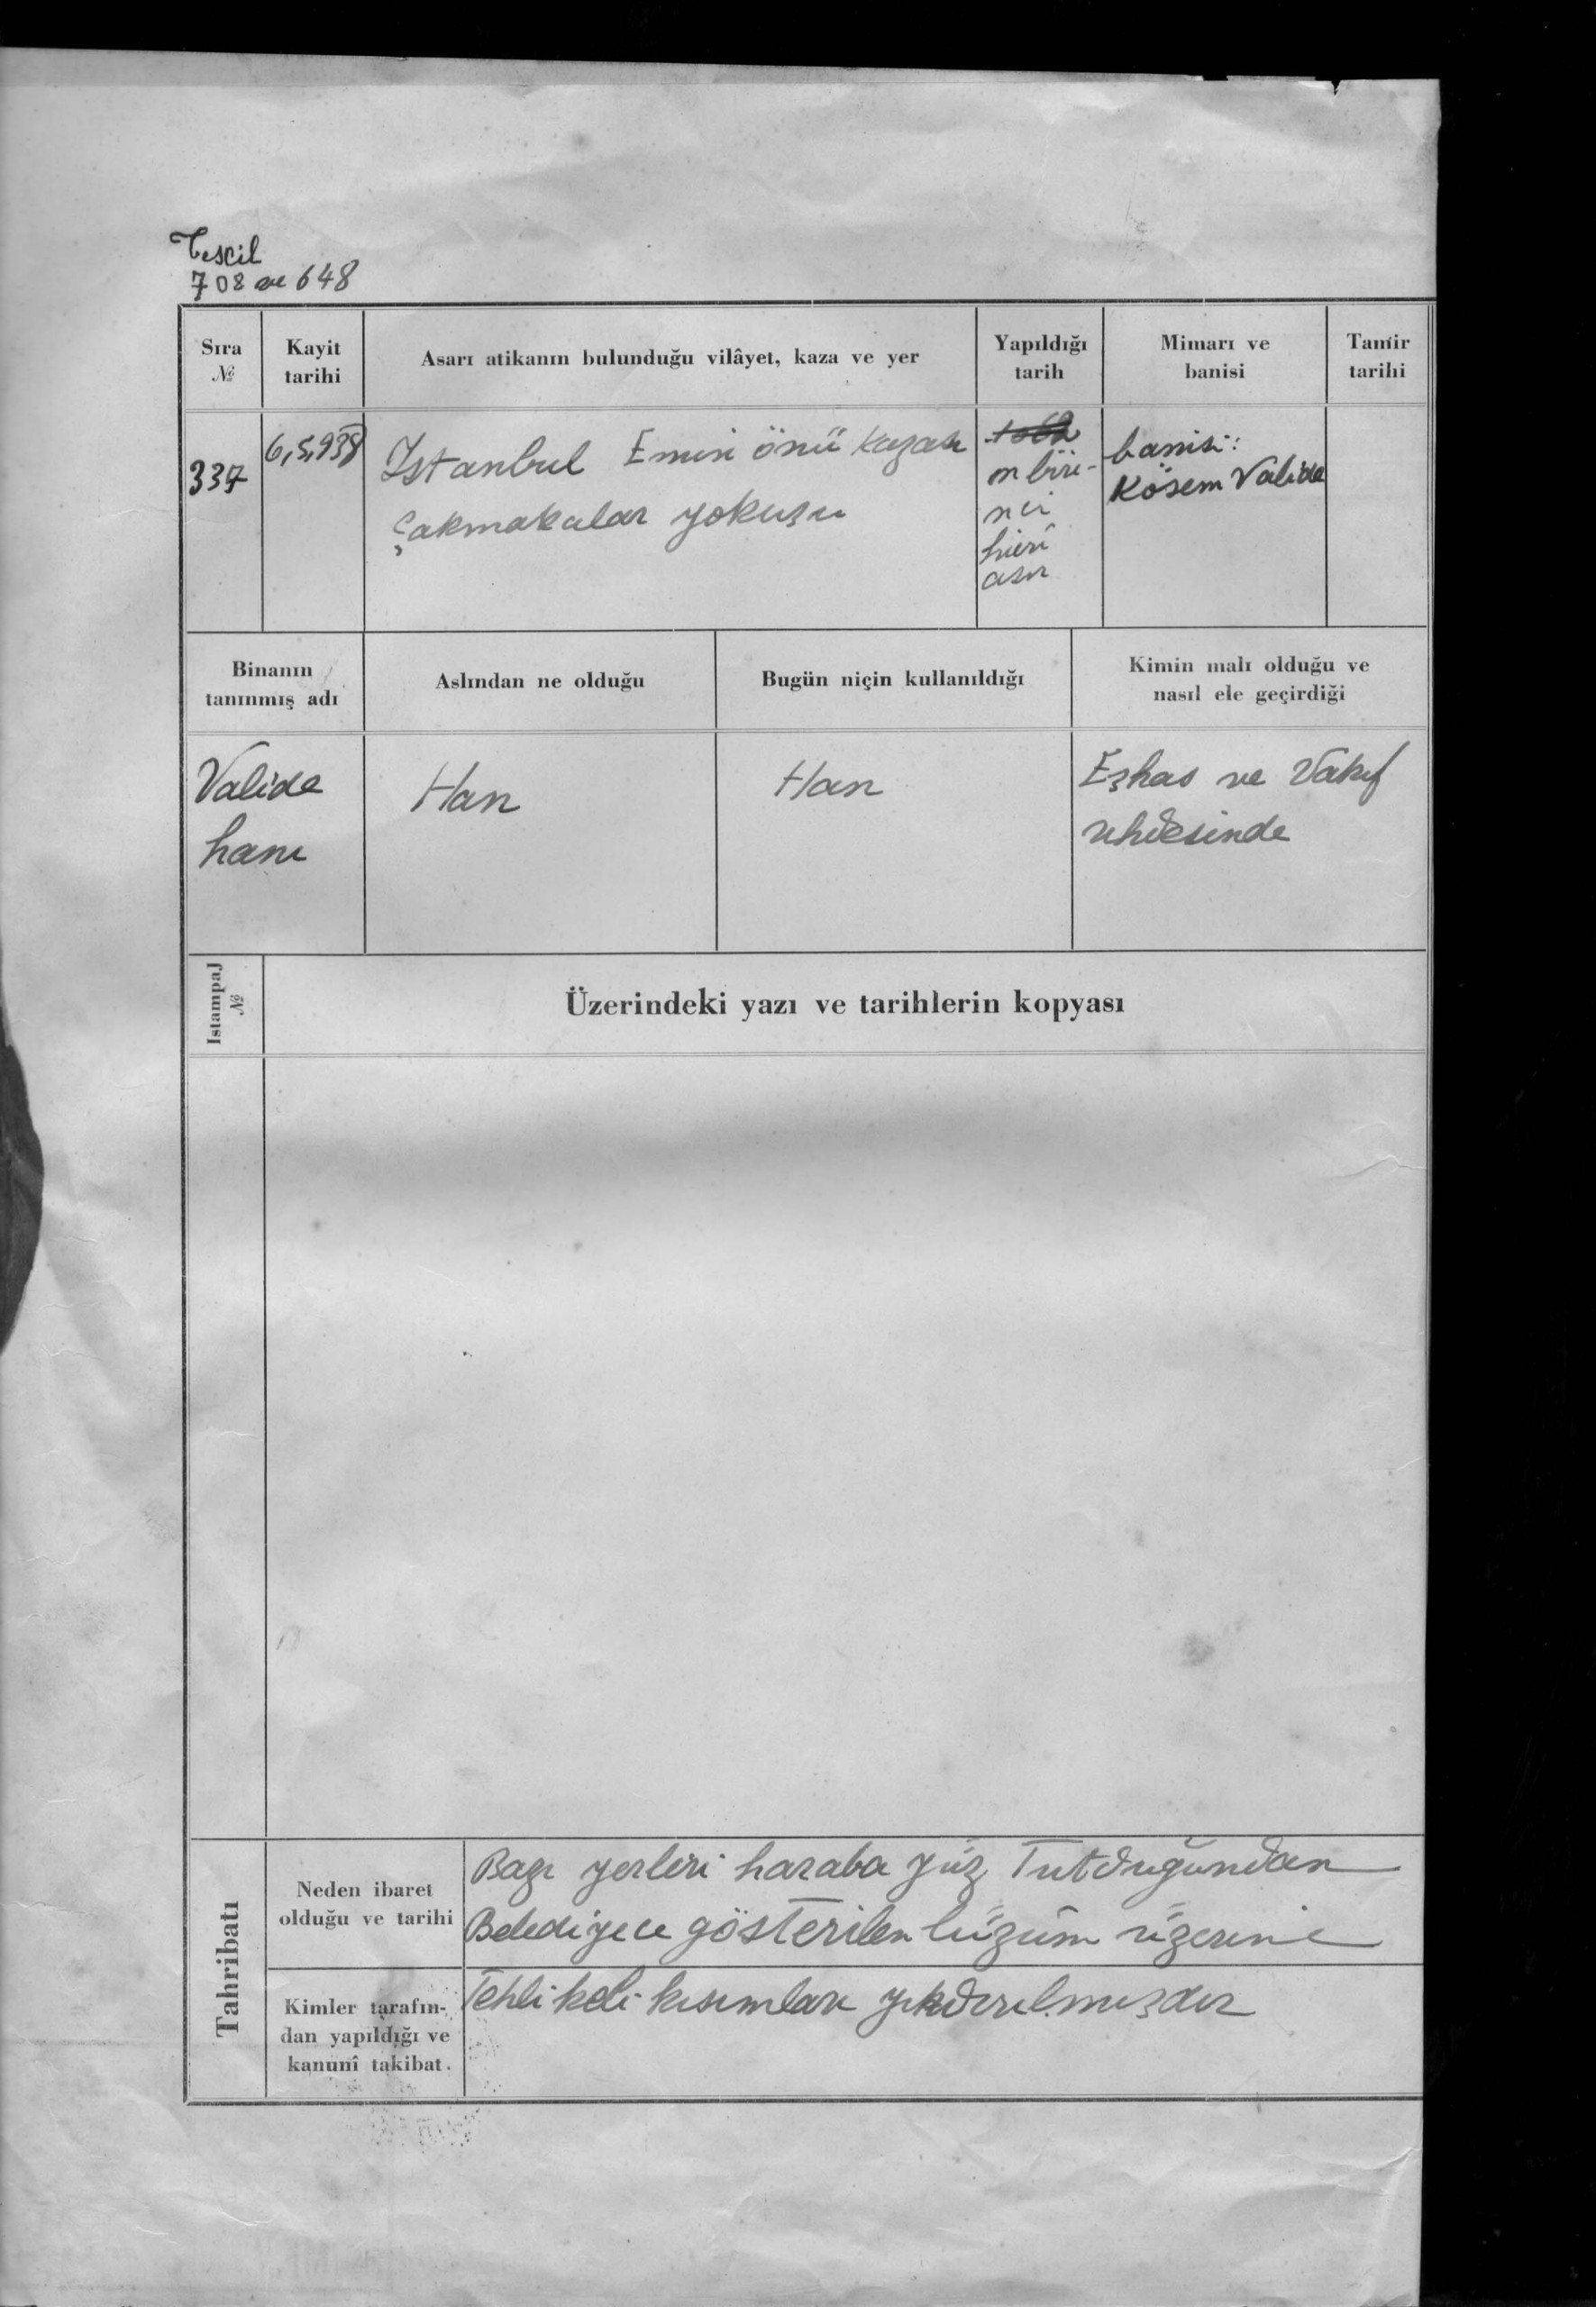 Tescil
708 ve 648
Sıra № Kayit tarihi Asarı atikanın bulunduğu vilâyet, kaza ve yer Yapıldığı tarih Mimarı ve banisi Tamir tarihi
337 6,5,938 Istanbul Emin önü kazası
Çakmakcılar yokuşu
on biri-
nci
hicrî
asır
banisi:
Kösem Valide
Binanın tanınmış adı Aslından ne olduğu Bugün niçin kullanıldığı Kimin malı olduğu ve nasıl ele geçirdiği
Valide
hanı
Han
Han
Eşhas ve Vakıf
uhdesinde
Istampaj № Üzerindeki yazı ve tarihlerin kopyası
Tahribatı
Neden ibaret
olduğu ve tarihi
Bazı yerleri haraba yüz Tutduğundan
Belediyece gösterilen lüzûm üzerine
Kimler tarafın-
dan yapıldığı ve
kanunî takibat.
Tehlikeli kısımları yıkdırılmışdır